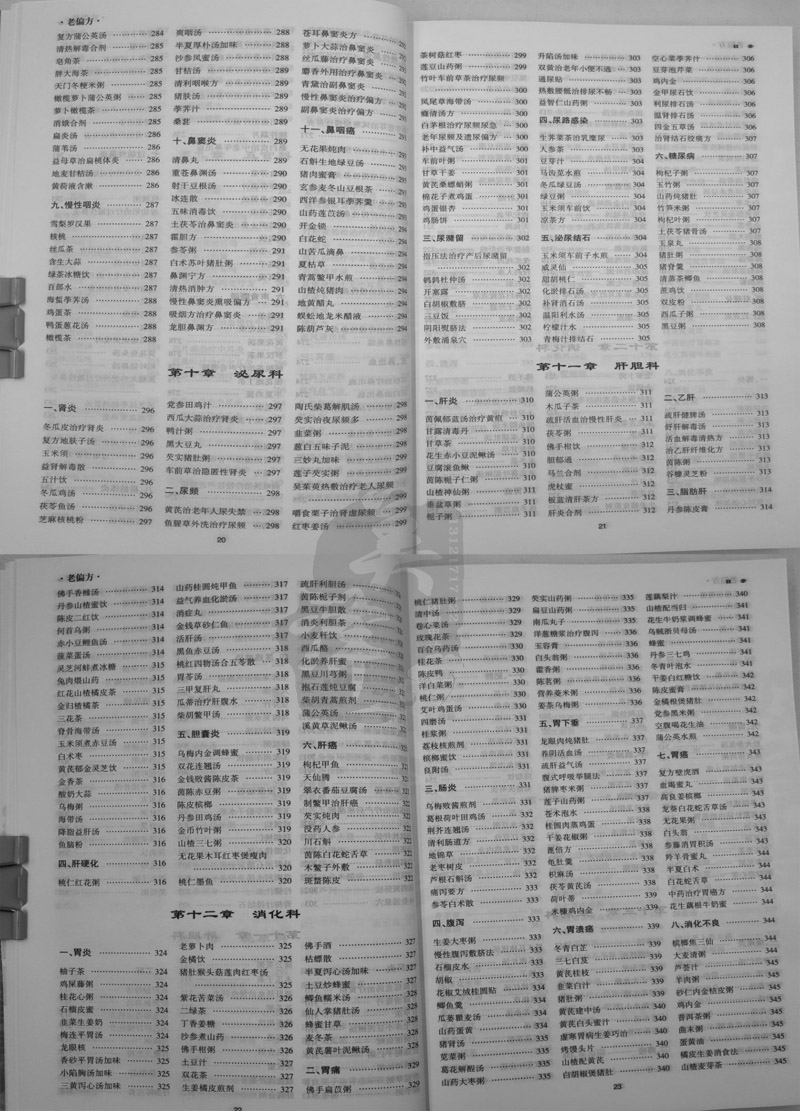 ·老偏方·
复方蒲公英汤 284
清热解毒合剂 285
皂角茶 285
胖大海茶 285
天门冬粳米粥 285
橄榄萝卜蒲公英粥 285
萝卜橄榄茶 285
消蛾合剂 285
扁炎汤 286
蒲苇汤 286
益母草治扁桃体炎 286
地麦甘桔汤 286
黄荷液含漱 286
九、慢性咽炎 287
雪梨罗汉果 287
核桃 287
丝瓜茶 287
含生大蒜 287
绿茶冰糖饮 287
百部水 287
海蜇荸荠汤 288
鸡蛋茶 288
鸭蛋葱花汤 288
橄榄茶 288
爽咽汤 288
半夏厚朴汤加味 288
沙参凤蜜汤 288
甘桔汤 288
清利咽喉方 288
猪肤汤 288
荸荠汁 288
桑葚 289
十、鼻窦炎 289
清鼻丸 289
重苍鼻渊汤 289
射干豆根汤 290
冰连散 290
五味消毒饮 290
土茯苓治鼻窦炎 290
霍胆方 290
参苓粥 290
白术苏叶猪肚粥 291
鼻渊宁方 291
清热消肿方 291
慢性鼻窦炎熏吸偏方 291
吸烟方治疗鼻窦炎 291
龙胆鼻渊方 291
苍耳鼻窦炎方
萝卜大蒜治鼻窦炎
丝瓜藤治疗鼻窦炎
麝香外用治疗鼻窦炎
青黛治副鼻窦炎
慢性鼻窦炎治疗偏方
副鼻窦炎治疗偏方
十一、鼻咽癌
无花果炖肉
石斛生地绿豆汤
猪肉蜜膏
玄参麦冬山豆根茶
西洋参银耳荸荠羹
山药莲苡汤
开金锁
白花蛇
山苦瓜滴鼻
夏枯草
青蒿鳖甲水煎 294
山楂炖猪肉 294
地黄醋丸 294
蜈蚣地龙米醋液 294
陈葫芦灰 294
第十章 泌尿科
一、肾炎 296
冬瓜皮治疗肾炎 296
复方地肤子汤 296
玉米须 296
益肾解毒散 296
五汁饮 296
冬瓜鸡汤 296
茯苓鱼汤 296
芝麻核桃粉 297
党参田鸡汁 297
西瓜大蒜治疗肾炎 297
鸭汁粥 297
黑大豆丸 297
芡实猪肚粥 297
车前草治隐匿性肾炎 297
二、尿频 298
黄芪治老年人尿失禁 298
鱼腥草外洗治疗尿频 298
陶氏柴葛解肌汤 298
芡实治夜尿频多 298
韭菜粥 298
葱白五味子泥 298
三妙丸加味 298
莲子芡实粥 298
吴茱萸热敷治疗老人尿频 299
嚼食栗子治肾虚尿频 299
红枣姜汤 299
20
茶树菇红枣 299
莲豆山药粥 299
竹叶车前草茶治疗尿频 300
凤尾草海带汤 300
癃清汤方 300
白茅根治疗尿频尿急 300
老年尿频及遗尿偏方 300
补中益气汤 300
车前叶粥 301
甘草干姜 301
黄芪桑螵蛸粥 301
棉花子煮鸡蛋 301
鸡蛋银杏 301
鸡肠饼 301
三、尿潴留 302
指压法治疗产后尿潴留 302
鹌鹑杜仲汤 302
开塞露 302
白胡椒敷脐 302
三豆饭 302
阴阳熨脐法 302
外敷涌泉穴 303
升陷汤加味 303
双黄治老年小便不通 303
通尿贴 303
热敷腰骶治排尿不畅 303
益智仁山药粥 303
四、尿路感染 303
生荠菜茶治乳糜尿 303
人参茶 303
豆芽汁 304
马齿苋水煎 304
冬瓜绿豆汤 304
绿豆粥 304
玉米须车前饮 304
凉茶方 304
五、泌尿结石 304
玉米须车前子水煎 304
威灵仙 305
甜胡桃仁 305
化淤排石汤 305
补肾消石汤 305
温阳利水汤 305
柠檬汁水 305
青梅汁排结石 305
空心菜荸荠汁 306
豆芽泡芹菜 306
鸡内金 306
金甲尿石饮 306
利尿排石汤 306
温肾排石汤 306
四金五草汤 306
治肾结石绞痛方 307
六、糖尿病 307
枸杞子粥 307
玉竹粥 307
山药炖猪肚 307
竹笋米粥 307
枸杞叶粥 307
土茯苓猪骨汤 307
玉泉丸 308
猪肚粥 308
猪脊羹 308
清蒸茶鲫鱼 308
蔗鸡饮 308
双皮粉 308
西瓜子粥 308
黑豆粥 308
第十一章 肝胆科
一、肝炎 310
茵佩郁蓝汤治疗黄疸 310
甘露清毒丹 310
甘草茶 310
花生赤小豆泥鳅汤 310
豆腐滚鱼鳅 310
茵陈栀子仁粥 310
山楂神仙粥 311
垂盆草粥 311
栀子粥 311
蒲公英粥 311
木瓜子茶 311
疏肝活血治慢性肝炎 311
茯苓粥 311
佛手柑饮 312
胆郁通 312
马兰合剂 312
虎杖蜜 312
板蓝清肝茶方 312
肝炎合剂 312
二、乙肝 313
疏肝健脾汤 313
舒肝解毒汤 313
活血解毒清热方 313
治乙肝纤维化方 313
茵陈粥 313
谷糠灵芝粉 313
三、脂肪肝 314
丹参陈皮膏 314
21
·老偏方·
佛手香橼汤 314
丹参山楂蜜饮 314
陈皮二红饮 314
何首乌粥 314
赤小豆鲤鱼汤 314
菠菜蛋汤 314
灵芝河蚌煮冰糖 315
兔肉煨山药 315
红花山楂橘皮茶 315
金归楂橘茶 315
三花茶 315
脊骨海带汤 315
玉米须煮赤豆汤 315
白术枣 315
黄芪郁金灵芝饮 315
金香茶 316
酸奶大蒜 316
乌梅粥 316
海带汤 316
降脂益肝汤 316
鱼脑粉 316
四、肝硬化 316
桃仁红花粥 316
山药桂圆炖甲鱼 317
益气养血化淤汤 317
消症丸 317
金钱草砂仁鱼 317
活肝汤 317
黑鱼赤豆汤 318
桃红四物汤合五苓散 318
胃苓汤 318
三甲复肝丸 318
瓜蒂治疗肝腹水 318
柴胡鳖甲汤 318
五、胆囊炎 319
乌梅内金调蜂蜜 319
双花连翘汤 319
金钱败酱陈皮茶 319
茵陈赤豆粥 319
陈皮槟榔 319
丹参田鸡汤 319
金币竹叶粥 319
山楂三七粥 320
无花果木耳红枣煲瘦肉 320
桃仁墨鱼 320
疏肝利胆汤
茵陈栀子剂
黑豆牛胆散
消炎利胆茶
小麦秆饮
西瓜醅
化淤养肝蜜
黑豆川芎粥
抱石莲炖豆腐
柴胡青蒿煎剂
蒲公英汤
溪黄草泥鳅汤
六、肝癌
枸杞甲鱼
天仙腾
翠衣番茄豆腐汤
制鳖甲治肝癌
芡实炖肉
没药人参
川石斛
茵陈白花蛇舌草
木鳖子外敷
斑蝥陈皮
第十二章 消化科
一、胃炎 324
柚子茶 324
鸡屎藤粥 324
桂花心粥 324
石榴皮蜜 324
韭菜生姜奶 324
梅连平胃汤 324
龙眼核 324
香砂平胃汤加味 325
小陷胸汤加味 325
三黄泻心汤加味 325
老萝卜肉 325
金橘饮 325
猪肚猴头菇莲肉红枣汤 325
紫花苦菜汤 326
二绿茶 326
丁香姜糖 326
沙参煮山药 326
佛手柑粥 326
土豆汁 326
双花茶 326
生姜橘皮煎剂 327
佛手酒 327
枯蟒散 327
半夏泻心汤加味 327
土豆炒蜂蜜 327
鲫鱼糯米汤 328
仙人掌猪肚汤 328
蜂蜜甘草 328
麦冬茶 328
黄芪薯叶泥鳅汤 328
二、胃痛 329
佛手扁苡粥 329
22
桃仁猪肚粥 329
清中汤 329
卷心菜汤 329
玫瑰花茶 329
百合乌药汤 330
桂花茶 330
陈皮鸭 330
洋白菜粥 330
桃仁粥 330
艾叶鸡蛋汤 330
四磨汤 331
桂浆粥 331
荔枝核煎剂 331
槟榔蜜饮 331
良附汤 331
三、肠炎 331
乌梅败酱煎剂 331
葛根荷叶田鸡汤 331
荆芥连翘汤 332
清利肠道方 332
地锦草 332
老枣树皮 332
芦根石斛汤 332
痛泻要方 332
参苓白术散 332
四、腹泻 332
生姜大枣粥 333
慢性腹泻敷脐法 333
石榴皮水 333
胡椒 333
花椒艾绒桂圆贴 334
鲫鱼羹 334
瓜蒌瞿麦汤 334
山药蛋黄 334
猪肾汤 335
苋菜粥 335
葛花解酲汤 335
山药大枣粥 335
芡实山药粥 335
扁豆山药粥 335
南瓜丸子 335
洋葱糖浆治疗腹泻 336
玉容膏 336
白头翁粥 336
藿香粥 336
陈茗粥 336
营养菱米粥 336
姜茶乌梅粥 336
五、胃下垂 337
龙眼肉炖猪肚 337
养阴活血汤 337
疏肝益气汤 337
腹式呼吸举腿法 337
猪脾枣米粥 337
莲子山药粥 338
苍术泡水 338
桂圆肉蒸鸡蛋 338
干姜花椒粥 338
蓖倍方 338
龟肚羹 338
枳麻汤 338
茯苓黄芪汤 338
荷叶蒂 339
米糠鸡内金 339
六、胃溃疡 339
冬青白芷 339
三七白及 339
黄芪桂枝 339
韭菜白汁 339
猪肚粥 339
黄芪建中汤 340
黄芪白头蜜汁 340
虚寒胃病生姜巧治 340
烤馒头片 340
山楂配黄芪 340
白胡椒煲猪肚 340
莲藕梨汁 340
山楂配当归 341
花生牛奶浆调蜂蜜 341
乌贼浙贝母汤 341
蜂蜜 341
丹参三七鸡 341
冬青叶泡水 341
干姜白红糖饮 342
陈皮蜜膏 342
金橘根煲猪肚 342
党参黑米粥 342
空腹喝花生油 342
蒲公英水煎 342
七、胃癌 343
复方壁虎酒 343
血竭蜜丸 343
高良姜槟榔 343
龙葵白花蛇舌草汤 343
无花果粥 343
白头翁 343
参藤消胃积汤 343
羚羊骨蜜丸 344
半夏白术 344
白花蛇舌草 344
中药治疗胃癌方 344
花生藕根牛奶蜜 344
八、消化不良 344
槟榔焦三仙 344
大麦清粥 344
芦荟汁 345
羊肉粥 345
砂仁内金桔皮粥 345
鸡内金 345
普洱茶粥 345
曲末粥 345
蛋黄油 345
橘皮生姜消食法 345
山楂麦芽茶 345
23